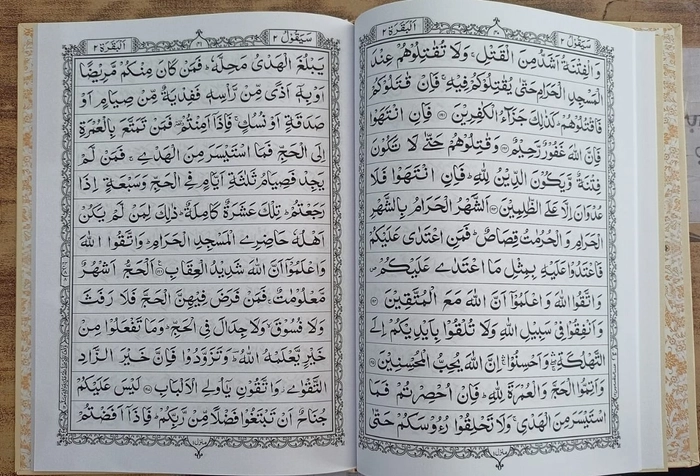 سَيَقُوْلُ ٢
٣٠
اَلْبَقَرَة ٢
وَالْفِتْنَةُ اَشَدُّ مِنَ الْقَتْلِ ۚ وَلَا تُقٰتِلُوْهُمْ عِنْدَ
الْمَسْجِدِ الْحَرَامِ حَتّٰى يُقٰتِلُوْكُمْ فِيْهِ ۚ فَاِنْ قٰتَلُوْكُمْ
فَاقْتُلُوْهُمْ ؕ كَذٰلِكَ جَزَآءُ الْكٰفِرِيْنَ ﴿۱۹۱﴾ فَاِنِ انْتَهَوْا
فَاِنَّ اللّٰهَ غَفُوْرٌ رَّحِيْمٌ ﴿۱۹۲﴾ وَقٰتِلُوْهُمْ حَتّٰى لَا تَكُوْنَ
فِتْنَةٌ وَّيَكُوْنَ الدِّيْنُ لِلّٰهِ ؕ فَاِنِ انْتَهَوْا فَلَا
عُدْوَانَ اِلَّا عَلَى الظّٰلِمِيْنَ ﴿۱۹۳﴾ اَلشَّهْرُ الْحَرَامُ بِالشَّهْرِ
الْحَرَامِ وَالْحُرُمٰتُ قِصَاصٌ ؕ فَمَنِ اعْتَدٰى عَلَيْكُمْ
فَاعْتَدُوْا عَلَيْهِ بِمِثْلِ مَا اعْتَدٰى عَلَيْكُمْ ۪
وَاتَّقُوا اللّٰهَ وَاعْلَمُوْۤا اَنَّ اللّٰهَ مَعَ الْمُتَّقِيْنَ ﴿۱۹۴﴾
وَاَنْفِقُوْا فِيْ سَبِيْلِ اللّٰهِ وَلَا تُلْقُوْا بِاَيْدِيْكُمْ اِلَى
التَّهْلُكَةِ ۛۚ وَاَحْسِنُوْا ۛۚ اِنَّ اللّٰهَ يُحِبُّ الْمُحْسِنِيْنَ ﴿۱۹۵﴾
وَاَتِمُّوا الْحَجَّ وَالْعُمْرَةَ لِلّٰهِ ؕ فَاِنْ اُحْصِرْتُمْ فَمَا
اسْتَيْسَرَ مِنَ الْهَدْيِ ۚ وَلَا تَحْلِقُوْا رُءُوْسَكُمْ حَتّٰى
سَيَقُوْلُ ٢
٣١
اَلْبَقَرَة ٢
يَبْلُغَ الْهَدْيُ مَحِلَّهٗ ؕ فَمَنْ كَانَ مِنْكُمْ مَّرِيْضًا
اَوْ بِهٖۤ اَذًى مِّنْ رَّاْسِهٖ فَفِدْيَةٌ مِّنْ صِيَامٍ اَوْ
صَدَقَةٍ اَوْ نُسُكٍ ۚ فَاِذَاۤ اَمِنْتُمْ ۥ فَمَنْ تَمَتَّعَ بِالْعُمْرَةِ
اِلَى الْحَجِّ فَمَا اسْتَيْسَرَ مِنَ الْهَدْيِ ۚ فَمَنْ لَّمْ
يَجِدْ فَصِيَامُ ثَلٰثَةِ اَيَّامٍ فِي الْحَجِّ وَسَبْعَةٍ اِذَا
رَجَعْتُمْ ؕ تِلْكَ عَشَرَةٌ كَامِلَةٌ ؕ ذٰلِكَ لِمَنْ لَّمْ يَكُنْ
اَهْلُهٗ حَاضِرِي الْمَسْجِدِ الْحَرَامِ ؕ وَاتَّقُوا اللّٰهَ
وَاعْلَمُوْۤا اَنَّ اللّٰهَ شَدِيْدُ الْعِقَابِ ﴿۱۹۶﴾ اَلْحَجُّ اَشْهُرٌ
مَّعْلُوْمٰتٌ ۚ فَمَنْ فَرَضَ فِيْهِنَّ الْحَجَّ فَلَا رَفَثَ
وَلَا فُسُوْقَ ۙ وَلَا جِدَالَ فِي الْحَجِّ ؕ وَمَا تَفْعَلُوْا مِنْ
خَيْرٍ يَّعْلَمْهُ اللّٰهُ ؔؕ وَتَزَوَّدُوْا فَاِنَّ خَيْرَ الزَّادِ
التَّقْوٰى ؗ وَاتَّقُوْنِ يٰۤاُولِي الْاَلْبَابِ ﴿۱۹۷﴾ لَيْسَ عَلَيْكُمْ
جُنَاحٌ اَنْ تَبْتَغُوْا فَضْلًا مِّنْ رَّبِّكُمْ ؕ فَاِذَاۤ اَفَضْتُمْ